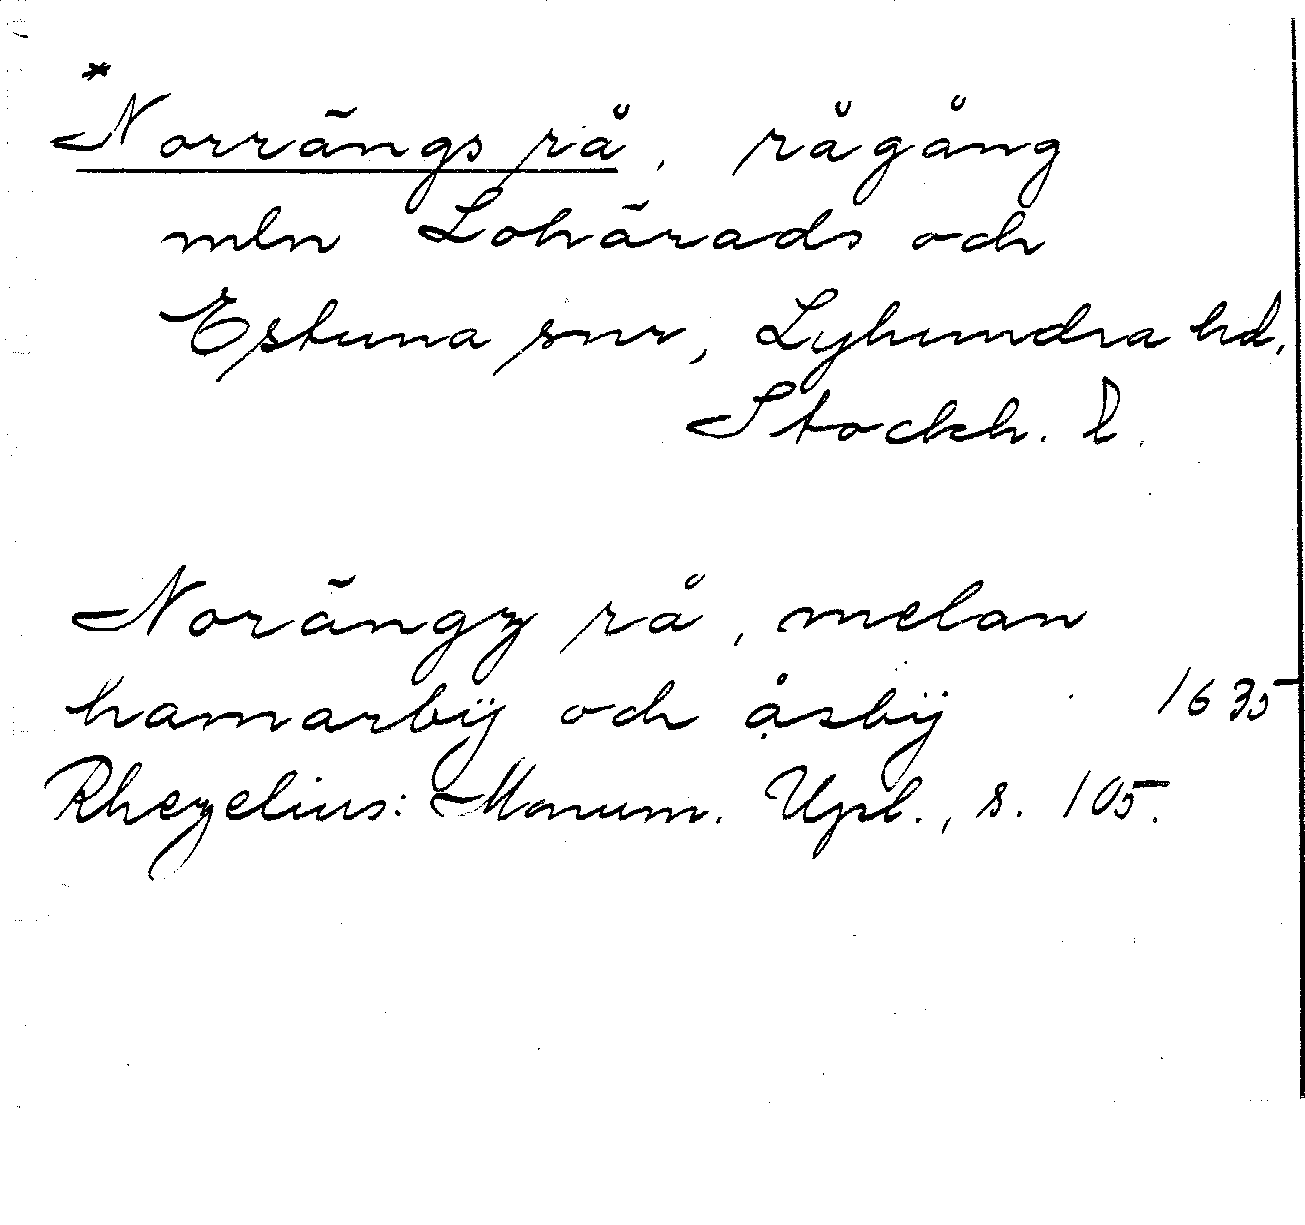 *Norrängs rå, rågång
mln Lohärads och
Estuna snr, Lyhundra hd,
Stockh. l.
Norängz rå, melan
hamarbÿ och åsbÿ 1635
Rhezelius: Monum. Upl., s. 105.